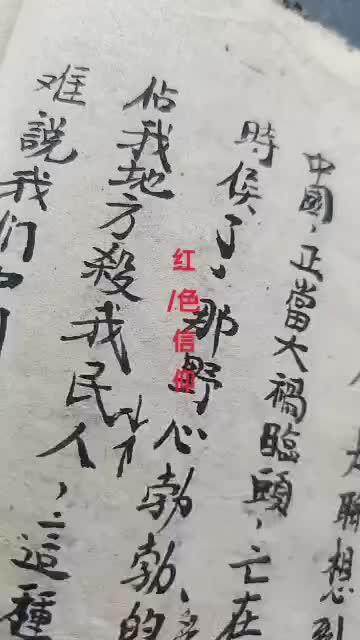 聯想
中國，正當大禍臨頭，亡在
時候了，那野心勃勃、的
佔我地方殺我民人，這種
难說我们
红
/色信仰